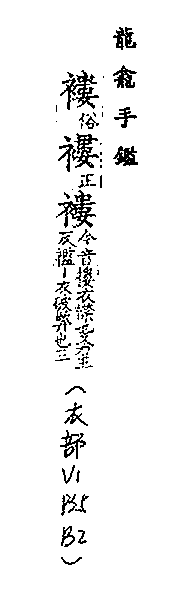 龍龕手鑑
褸俗褸正褸今音樓衣襟也又力主
反襤丨衣破弊也三
(衣部
V1
P.35
B2)